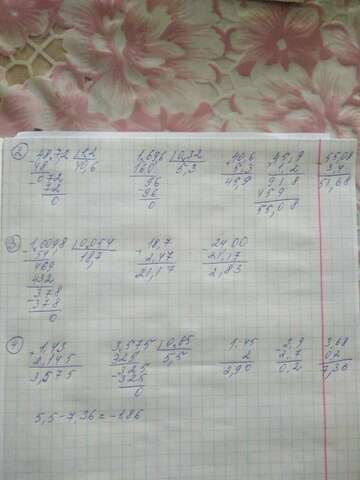 2
48,72 1,2 1,696 0,32 40,6 45,9 55,08
48 40,6 160 5,3 5,3 1,2 3,4
072 96 45,9 918 51,68
72 96 459
0 0 55,08
3
1,0098 0,054 18,7 24,00
54 18,7 2,47 21,17
469 21,17 2,83
432
378
378
0
4
1,43 3,575 0,65 1,45 2,9 3,68
2,145 325 5,5 2 2,7 02
3,575 325 2,90 0,2 7,36
325
0
5,5-7,36=-1,86